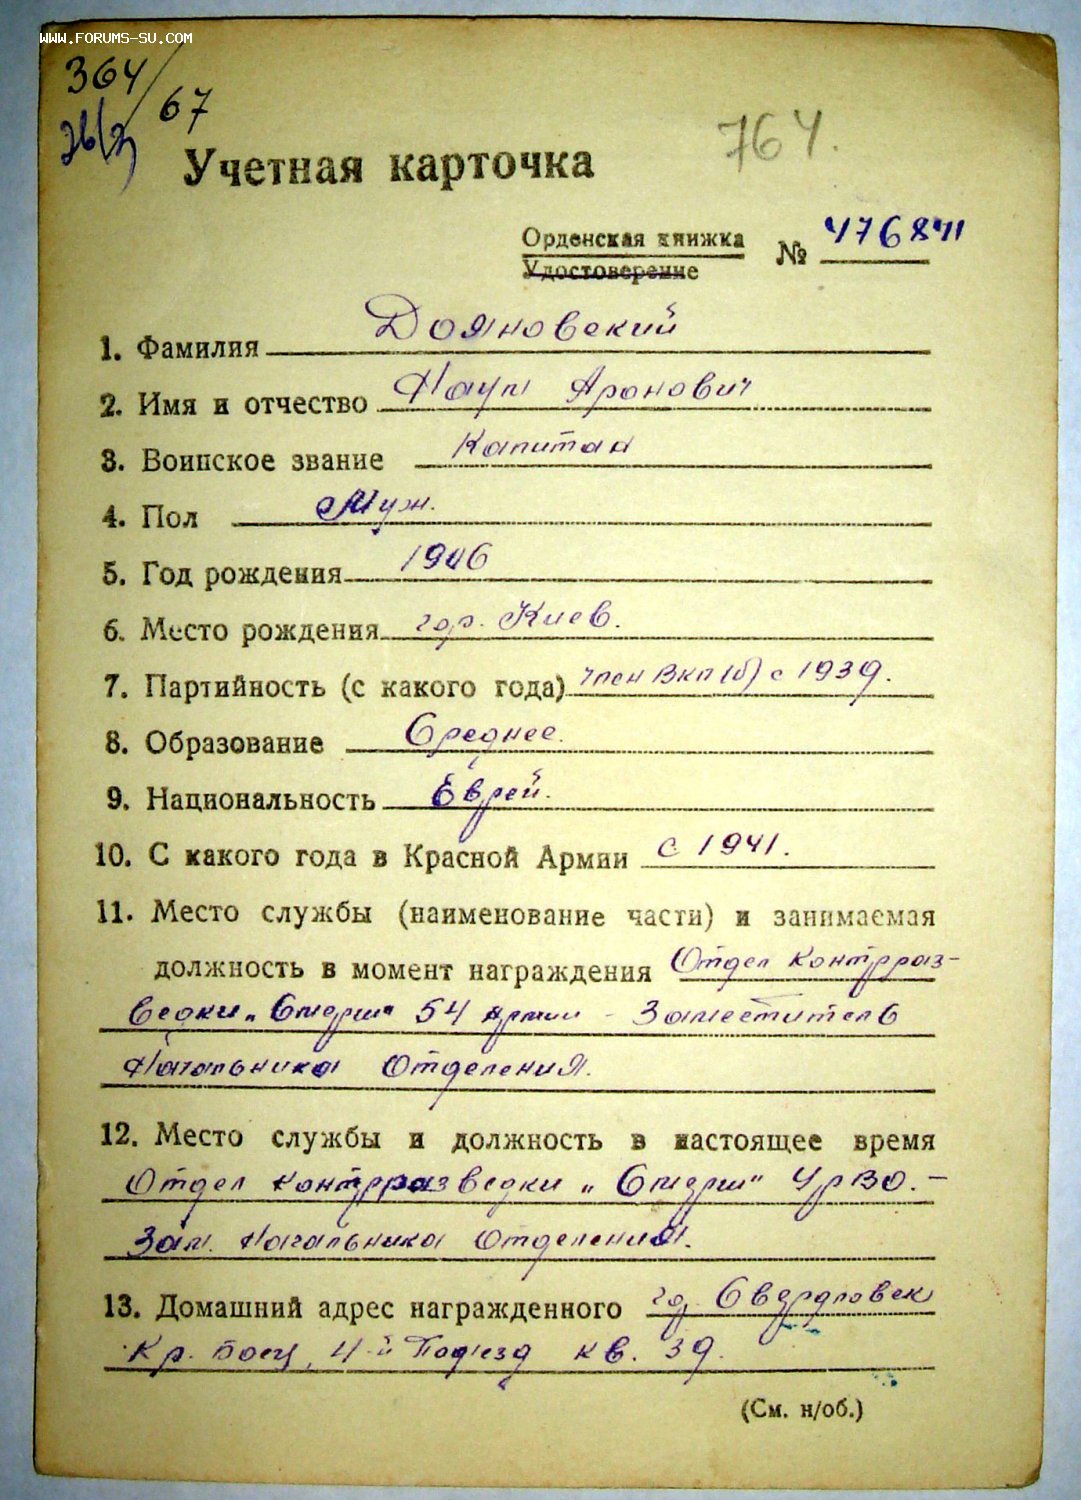 www.forums-su.com
364/67
764.
Учетная карточка
Орденская книжка
Удостоверение
№ 476841
1. Фамилия Дояновский
2. Имя и отчество Наум Аронович
3. Воинское звание Капитан
4. Пол Муж.
5. Год рождения 1906
6. Место рождения гор. Киев.
7. Партийность (с какого года) член ВКП(б) с 1939.
8. Образование Среднее.
9. Национальность Еврей.
10. С какого года в Красной Армии с 1941.
11. Место службы (наименование части) и занимаемая
должность в момент награждения Отдел контрраз-
ведки „Смерш" 54 Армии - Заместитель
Начальника Отделения.
12. Место службы и должность в настоящее время
Отдел контрразведки „Смерш" УрВО. -
Зам. Начальника Отделения.
13. Домашний адрес награжденного Свердловск
Кр. Боец, 4-й Подъезд кв. 39.
(См. н/об.)